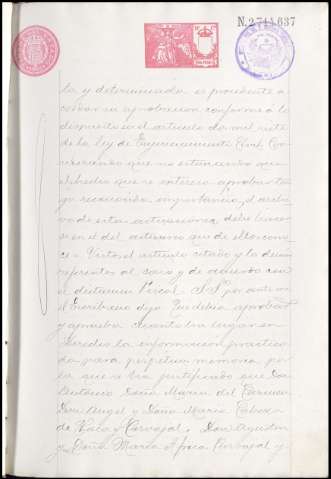 N. 2.744.637
da y determinada es procedente a
cordar su aprobacion conforme a lo
dispuesto en el articulo dos mil siete
de la ley de Enjuiciamiento Civil. Con
siderando que no siendo
el hecho que se interesa aprobar ten
ga reconocida importancia, el archi
vo de estas actuaciones debe
se en el del actuario que de ellas cono
ce = Visto, el articulo citado y lo demas
referentes al caso y de acuerdo con
el dictamen Fiscal S.Sª por ante mi
el Escribano dijo Que debia aprobar
y aprueba cuanto ha lugar en
derecho la informacion practica
da para perpetua memoria, por
la que se ha justificado que Don
Doña Maria del Carmen
Don Angel y Doña Maria
de Vaca y Carvajal, Don Agustin
y Doña Maria Carvajal y